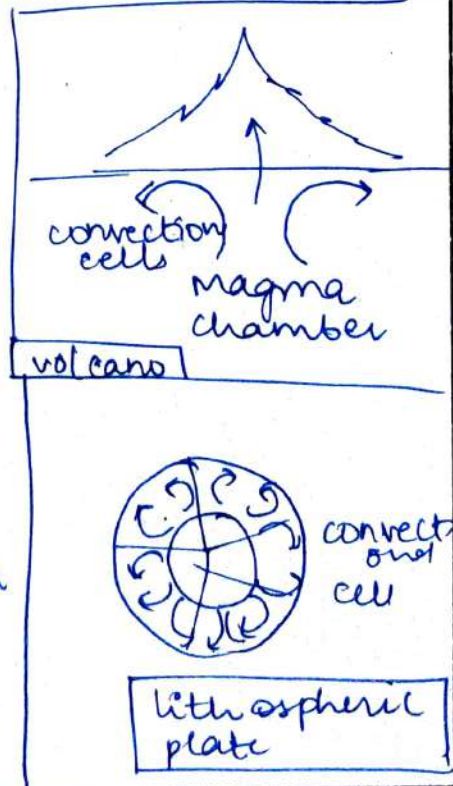 convection
cells
magma
chamber
volcano
convecti
onal
cell
lithospheric
plate